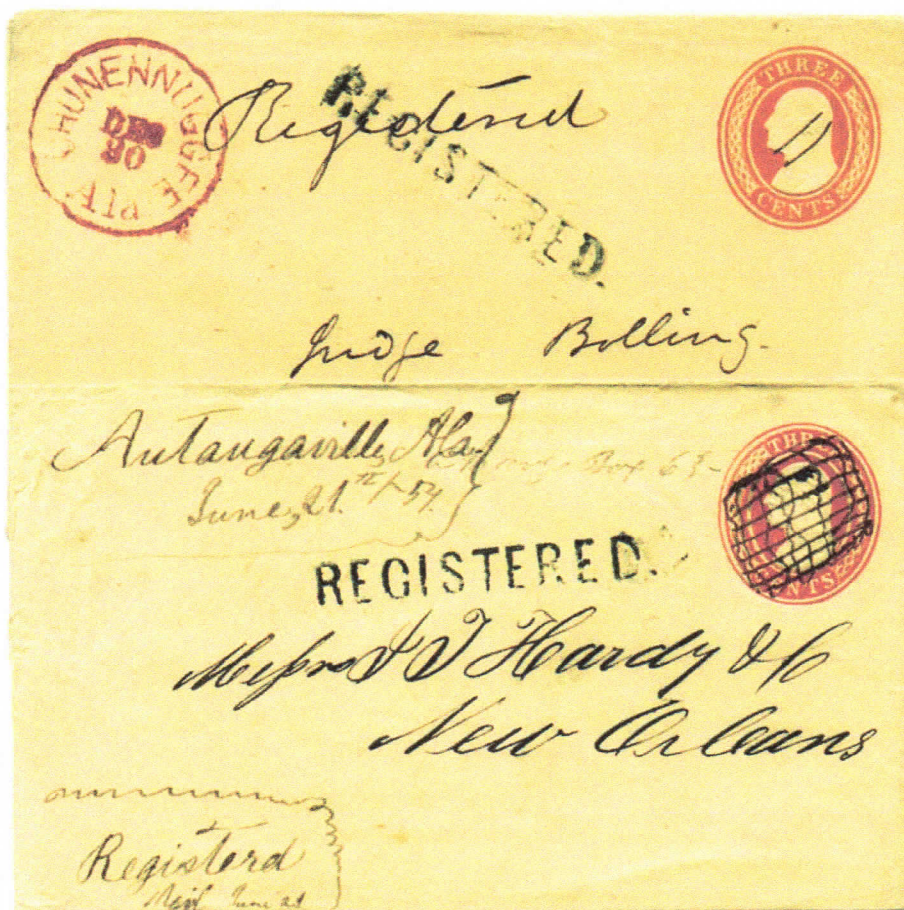 CHUNENNUGGEE Ala
DEC
30
Registered
REGISTERED.
THREE
CENTS
Judge Bolling.
Autaugaville, Ala
Box 63-
June, 21.st/54.
THREE
CENTS
REGISTERED.
Messrs J J Hardy & Co
New Orleans
Registerd
June 21